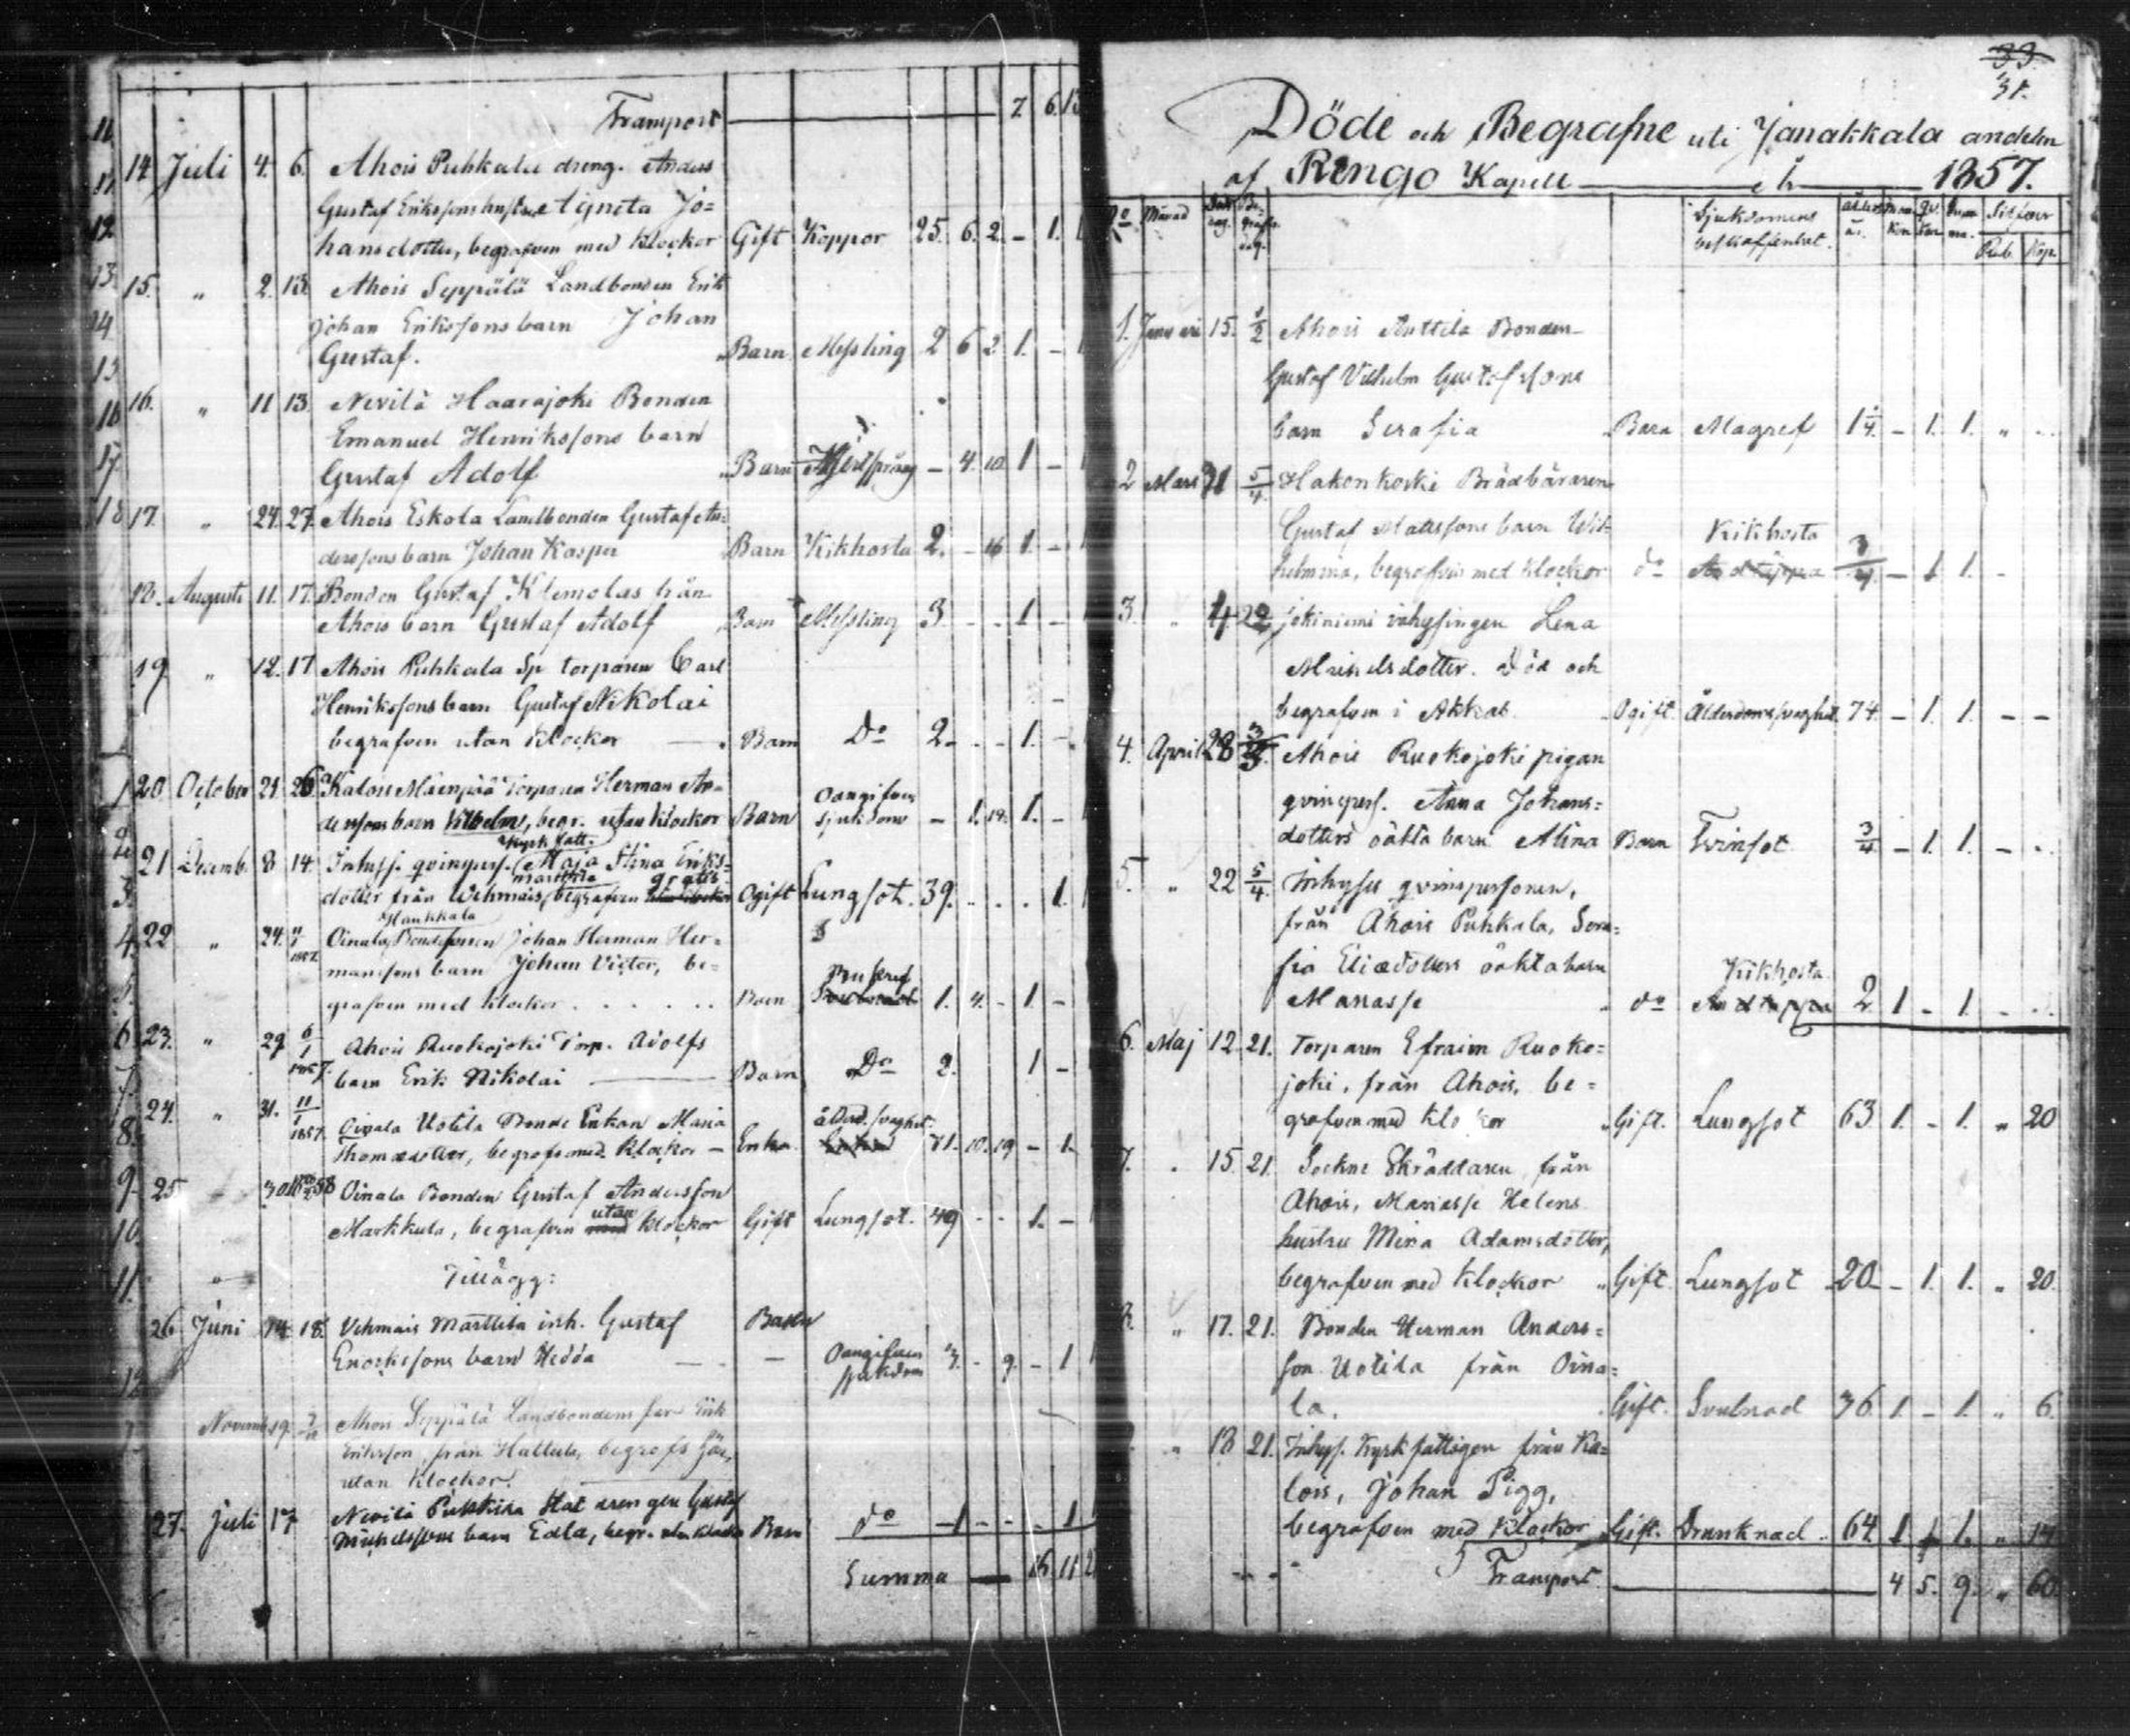 Transport 7 6 13
14 Juli 4. 6. Ahois Puhkala dreng. Anders
Gustaf Erikssons hustru Agneta Jo=
hansdotter, begrafven med klockor Gift Koppor 25. 6. 2. - 1. 1
15. " 2. 13. Ahois Seppälä Landbonden Erik
Johan Erikssons barn Johan
Gustaf. Barn Messling 2 6 2 1. -
16. " 11 13. Nevilä Haarajoki Bonden
Emanuel Henrikssons barn
Gustaf Adolf Barn - 4. 10 1 -
17. " 24. 27. Ahois Eskola Landbonden Gustaf An=
derssons barn Johan Kasper Barn Kikhosta 2. - 16 1. -
18. Augusti 11. 17. Bonden Gustaf Klemolas från
Ahois barn Gustaf Adolf Barn Messling 3. - . 1 -
19. " 12. 17 Ahois Puhkala Sp torparen Carl
Henrikssons barn Gustaf Nikolai
begrafven utan klockor Barn Do 2. - . 1. -
20 October 21 26 Kalois Mäenpää Torparen Herman An=
derssons barn Vilhelm, begr. utan klockor Barn Oangifven sjukdom - 1. 19. 1. -
21 Decemb. 8 14. Inhys. qvinspers. Kyrk fatt. Maja Stina Eriks=
dotter från Wehmais, Marttila begrafven gratis Ogift Lungsot. 39. . . . 1.
22 " 24. Oinala, Haukkala Bondesonen Johan Herman Her=
manssons barn Johan Victor, be=
grafven med klockor . . . . . Barn 1. 4. - 1. -
23. " 29 6/1 1857. Ahois Ruokojoki Torp. Adolfs
barn Erik Nikolai Barn Do 2. 1 -
24. " 31. 11/1 1857. Oinala Uotila Bonde Enkan Maria
Thomasdotter, begrafv. med klockor - Enka Ålderd. svaghet 71. 10. 19 - 1.
25. 30 Oinala Bonden Gustaf Andersson
Markkula, begrafven utan klockor Gift Lungsot. 49 - - 1. -
Tillägg:
26 Juni 14. 18. Vehmais Marttila inh. Gustaf
Enocksons barn Hedda Barn Oangifven sjukdom - 9. - 1
Novemb. 19. Ahois Seppälä Landbondens far Erik
Eriksson från Hattula, begrofs här,
utan klockor.
27. Juli 17 Nevilä Puhkila Stat drengen Gustaf
Michelssons barn Edla, begr. utan klockor Barn do 1 - - . 1
Summa 16. 11
33
31.
Döde och Begrafne uti Janakkala andelen
af Rengo Kapell år 1857.
No Månad Sjukdomens beskaffenhet. ålder år. Rub. Kop.
1. Januari 15. 1/2 Ahois Anttila Bonden
Gustaf Vilhelm Gustafssons
barn Serafia Barn Magref 1 1/4. - 1. 1. " ..
2 Mars 31 5/4. Hakonkoski Brädbäraren
Gustaf Matssons barn Wil=
helmina, begrafven med klockor do Kikhosta Andtäppa 3/4. - 1 1. -
3. " 4. 22 Jokiniemi inhysingen Lena
Michelsdotter. Död och
begrafven i Akkas. Ogift Ålderdomssvaghet. 74. - 1. 1. - -
4. April 28 Ahois Ruokojoki pigan
qvinspers. Anna Johans=
dotters oäkta barn Alina Barn Tvinsot 3/4. - 1. 1. - ..
5. " 22 5/4. Inhyses qvinspersonen,
från Ahois Puhkala, Sera=
fia Eliædotters oäkta barn
Manasse do Kikhosta Andtäppa 2 1 - 1. - ..
6. Maj 12. 21. Torparen Efraim Ruoko=
joki, från Ahois, be=
grafven med klockor Gift. Lungsot 63 1. - 1. " 20
7. . 15. 21. Sockne Skräddaren från
Ahois, Manasse Helens
hustru Mina Adamsdotter,
begrafven med klockor Gift. Lungsot 20 - 1. 1. " 20.
8. " 17. 21. Bonden Herman Anders=
son Uotila från Oina=
la. Gift. Svulnad 36 1 - 1. " 6.
" 18 21. Inhys. Kyrkfattigen från Ka=
lois, Johan Pigg,
begrafven med klockor Gift. Drunknad . 64. 1 1. " 14
Transport 4 5. 9. " 60